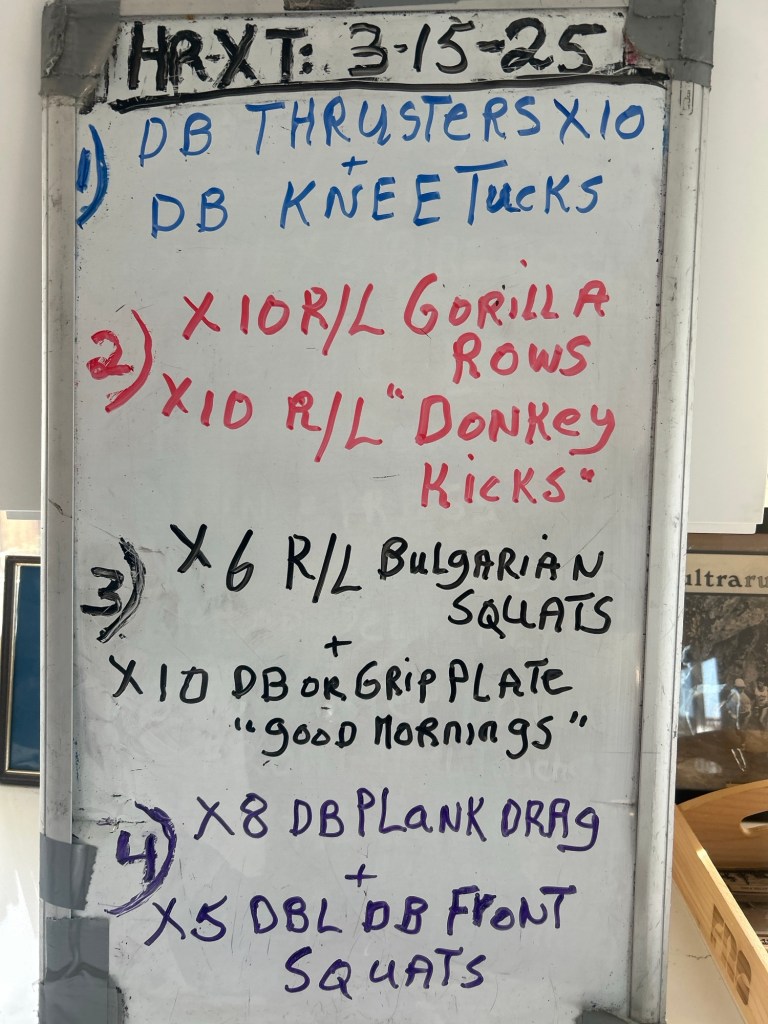 HR-XT: 3-15-25
1) DB THRUSTERS X10
+
DB KNEE TUCKS
2) X10 R/L GORILLA
ROWS
X10 R/L "DONKEY
KICKS"
3) X 6 R/L BULGARIAN
SQUATS
+
X10 DB OR GRIP PLATE
"GOOD MORNINGS"
4) X8 DB PLANK DRAG
+
X5 DBL DB FRONT
SQUATS
ultraru